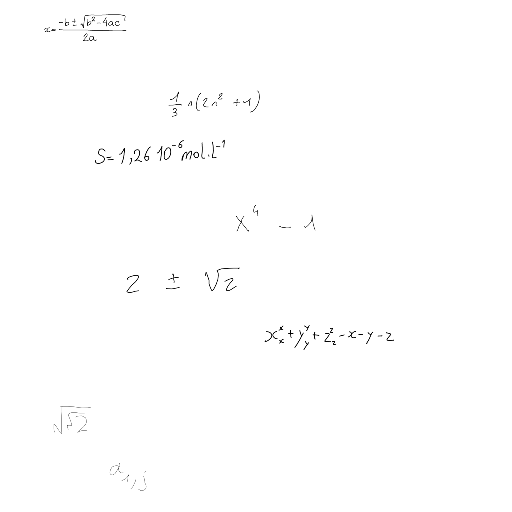 x = \frac{-b ± \sqrt{b^2 - 4ac}}{2a}
\frac{1}{3} n(2n^2 + 1)
S = 1,26 10^{-6} mol.l^{-1}
x^4 - 1
2 ± \sqrt{2}
x_x^x + y_y^y + z_z^2 - x - y - z
a_{1,j}